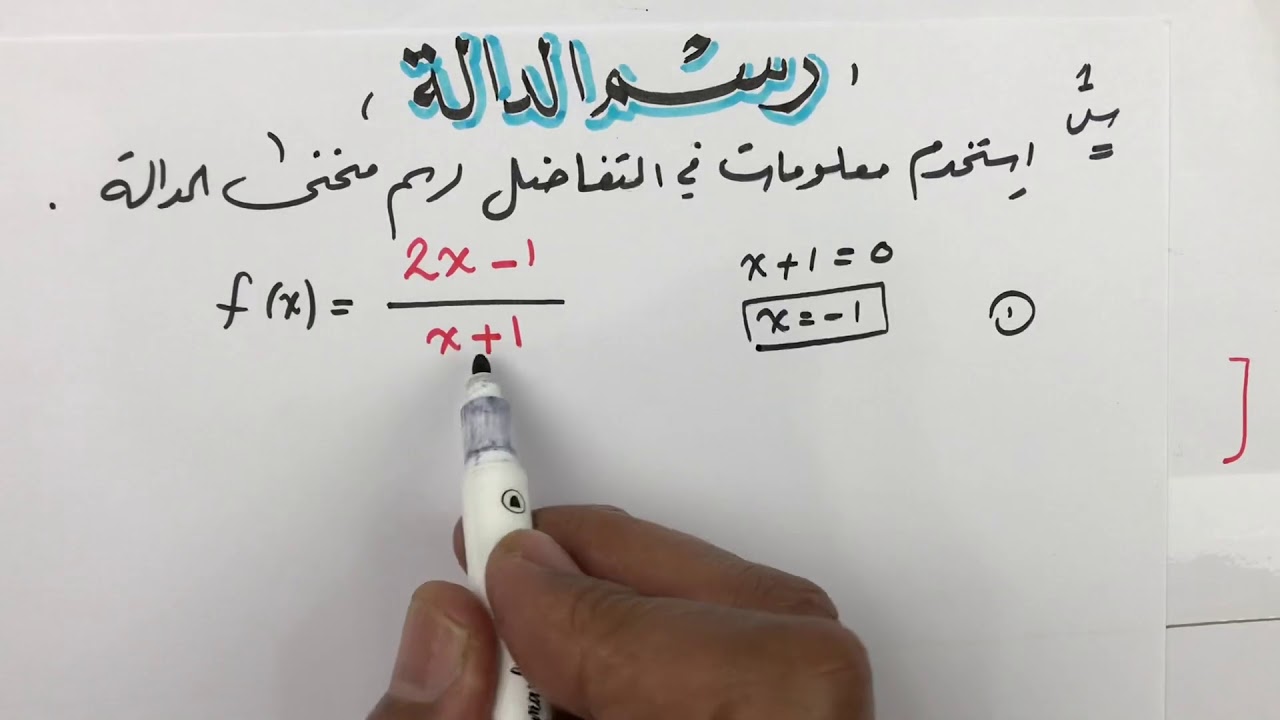 ، رسم الدالة ،
س1
إستخدم معلومات في التفاضل رسم منحنى الدالة .
f(x) = 2x - 1 / x + 1
x + 1 = 0
x = -1
①